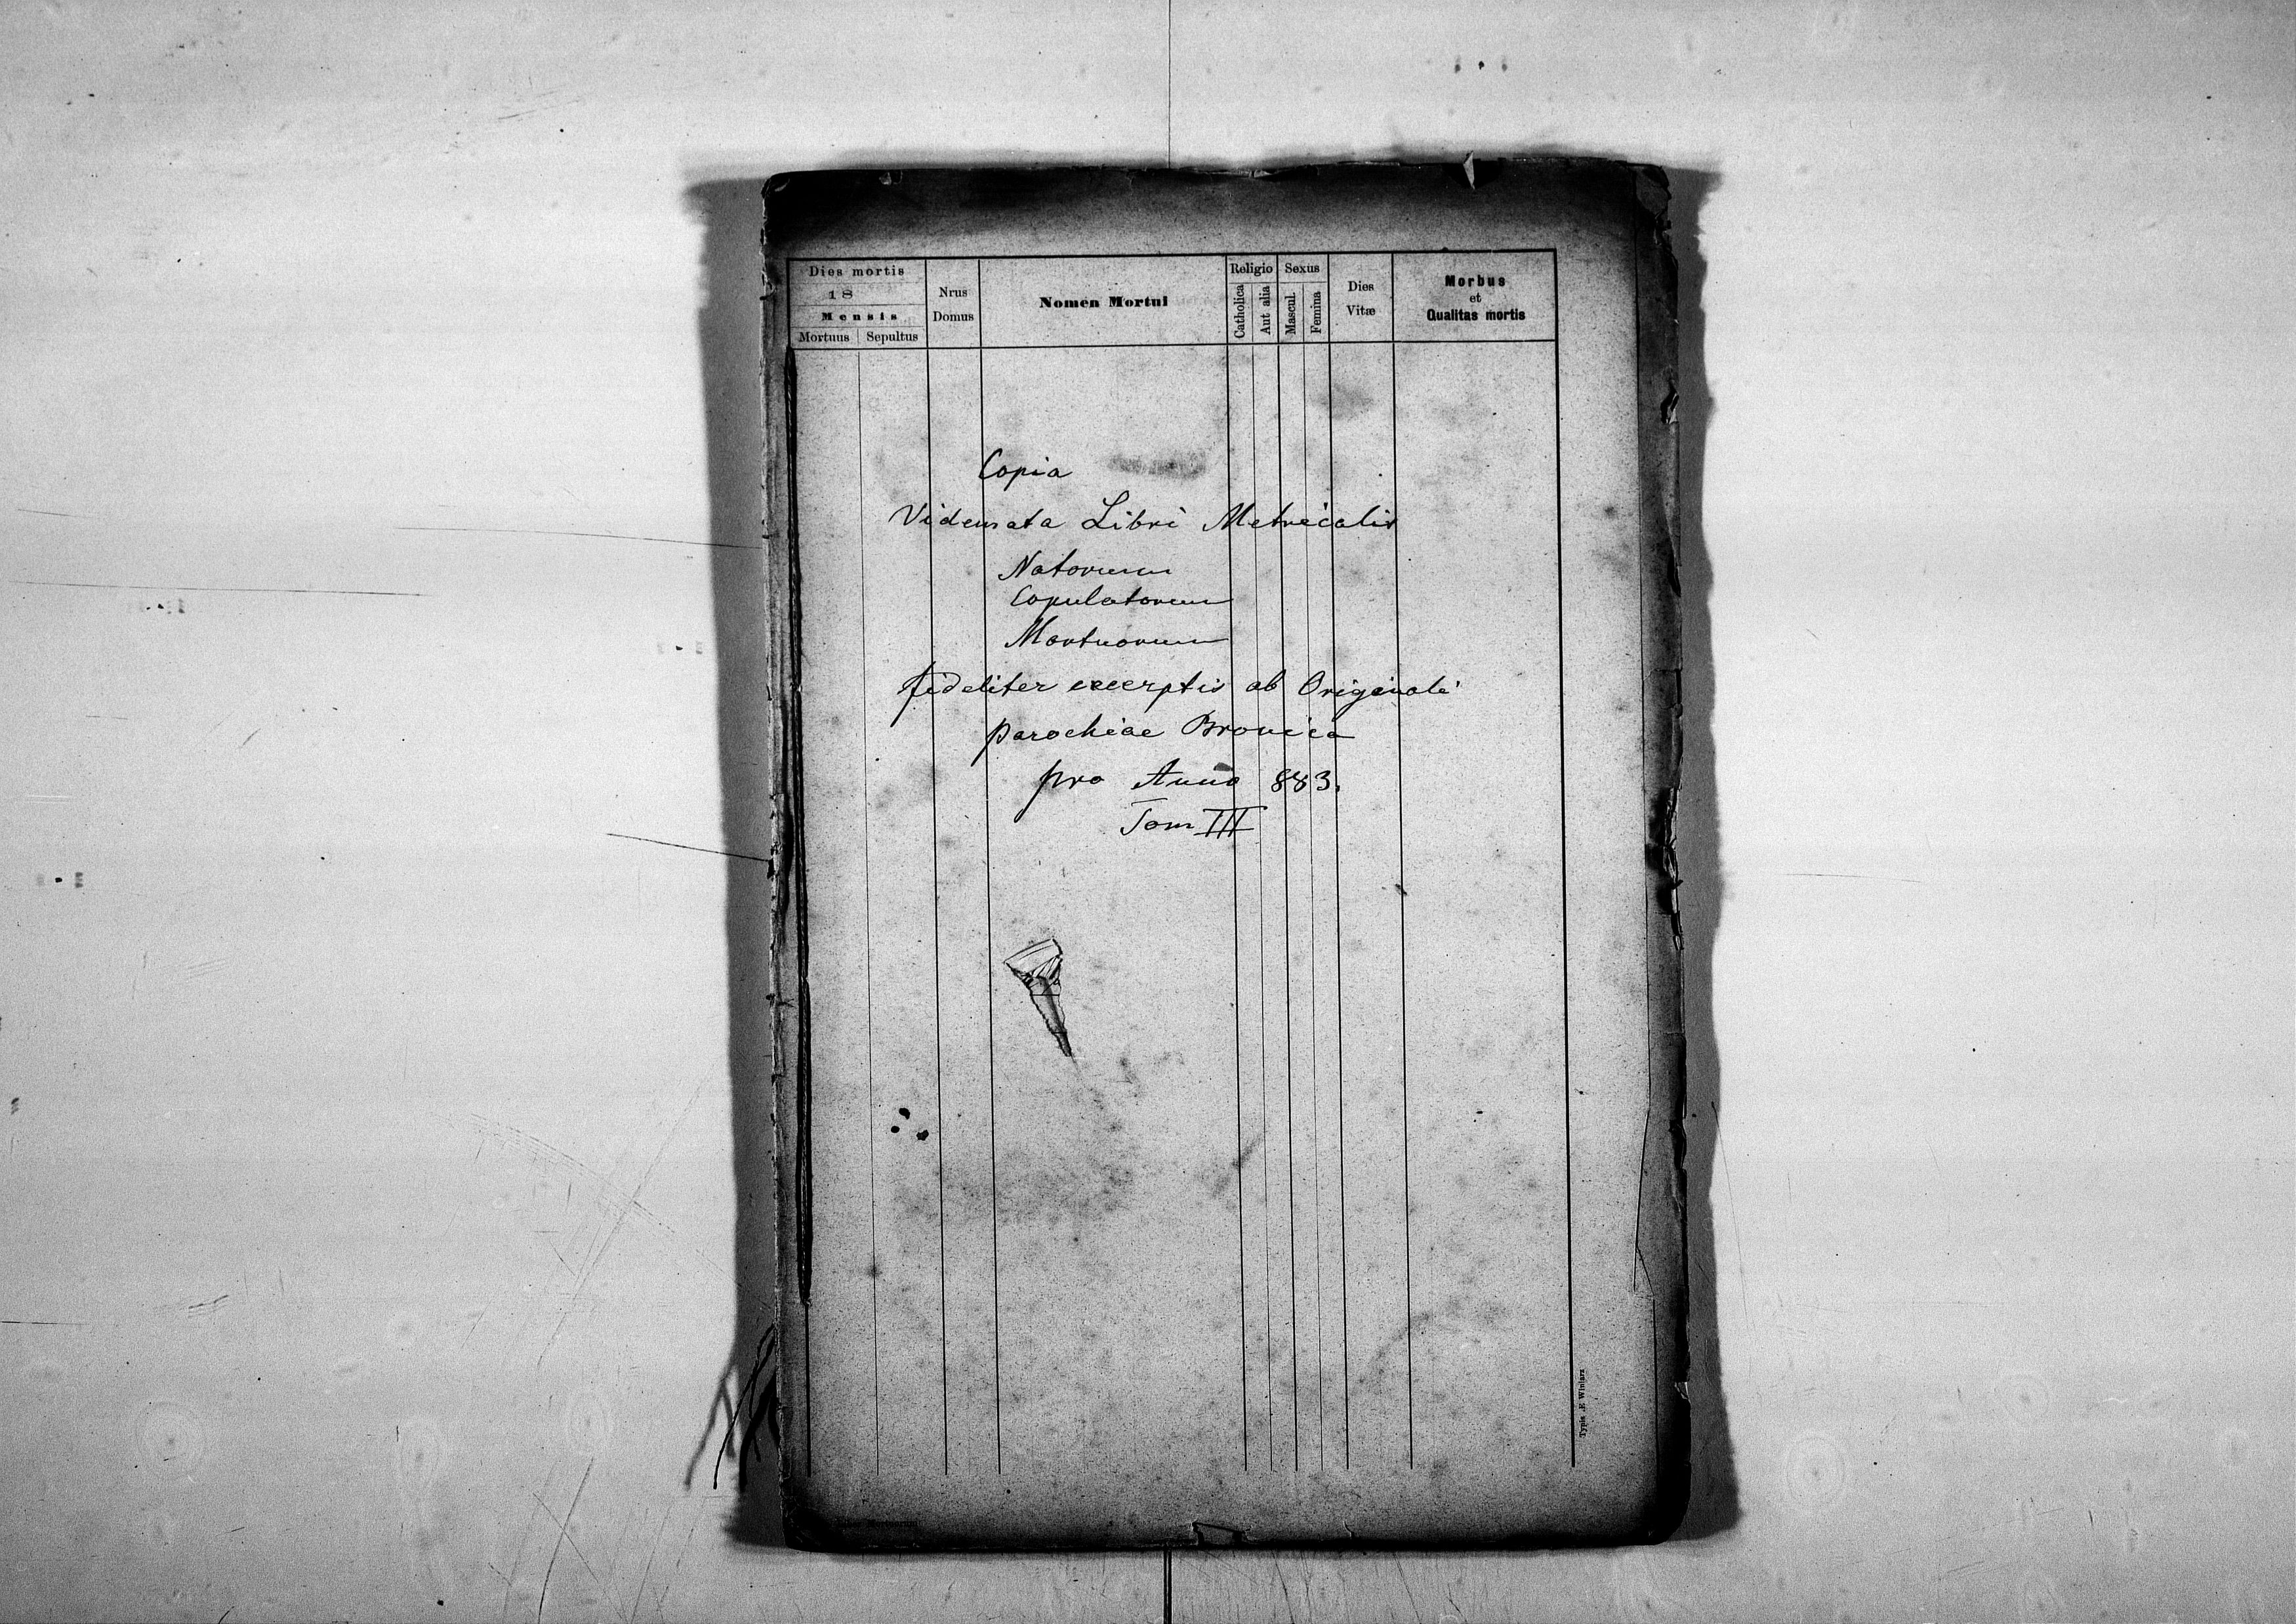 Dies mortis
18
Mensis
Mortuus Sepultus
Nrus
Domus
Nomen Mortui
Religio
Catholica
Aut alia
Sexus
Mascul.
Femina
Dies
Vitæ
Morbus
et
Qualitas mortis
Copia
Videmata Libri Metricalis
Natorum
Copulatorum
Mortuorum
fideliter excerptis ab Originali
parochiae Bronica
pro Anno 883.
Tom III
Typis .E Winiarz